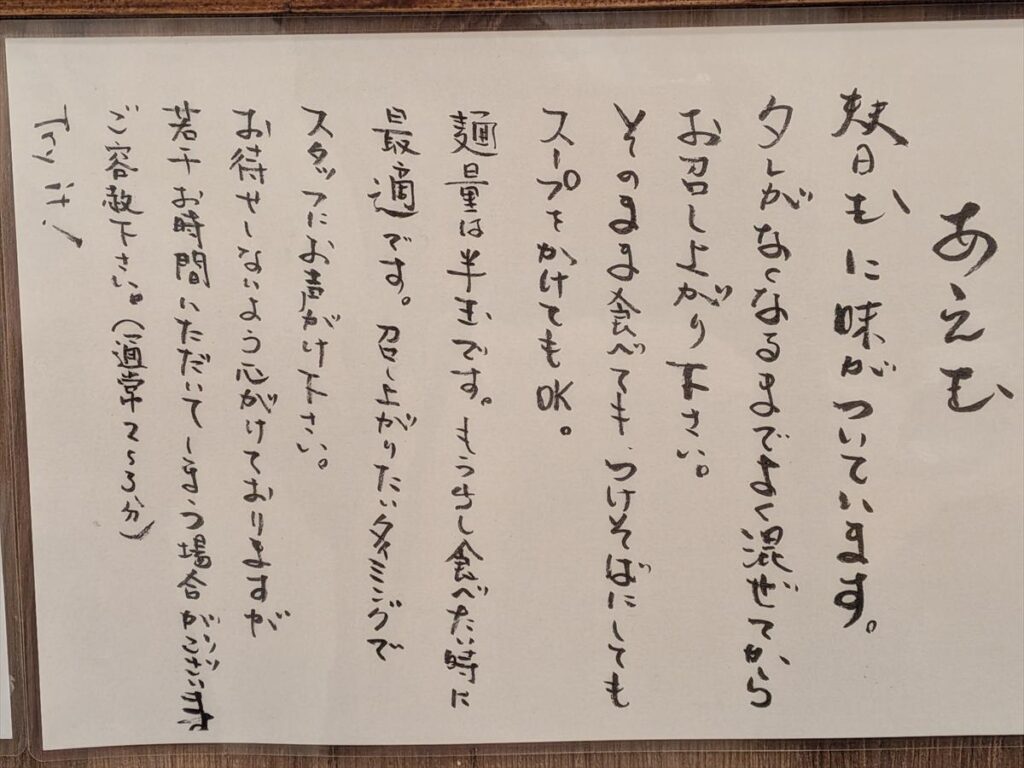 あえ玉
麺自体に味がついています。
タレがなくなるまでよく混ぜてから
お召し上がり下さい。
そのまま食べても、つけそばにしても
スープをかけてもOK。
麺量は半玉です。もう少し食べたい時に
最適です。召し上がりたいタイミングで
スタッフにお声がけ下さい。
お待せしないよう心がけておりますが
若干お時間いただいてしまう場合がございます
ご容赦下さい。(通常2~3分)